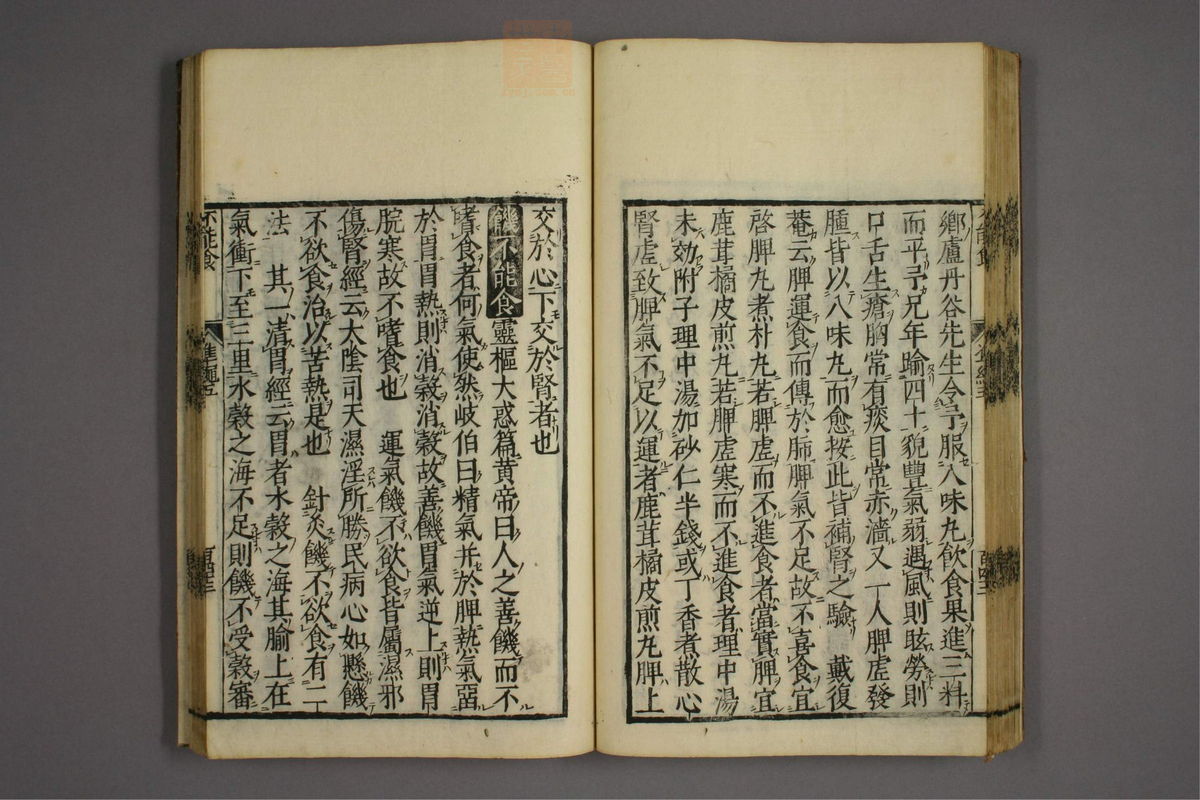 鄉廬丹谷先生令予服八味丸飲食果進三料
而平予兄年踰四十貌豐氣弱遇風則眩勞則
口舌生瘡胸常有痰目常赤濇又一人脾虛發
腫皆以八味丸而愈按此皆補腎之驗　戴復
菴云脾運食而傳於肺脾氣不足故不喜食宜
啓脾丸煮朴丸若脾虛而不進食者當實脾宜
鹿茸橘皮煎丸若脾虛寒而不進食者理中湯
未効附子理中湯加砂仁半錢或丁香煮散心
腎虛致脾氣不足以運者鹿茸橘皮煎丸脾上
交於心下交於腎者也
饑不能食靈樞大惑篇黄帝曰人之善饑而不
嗜食者何氣使然岐伯曰精氣并於脾熱氣留
於胃胃熱則消穀消穀故善饑胃氣逆上則胃
脘寒故不嗜食也　運氣饑不欲食皆屬濕邪
傷腎經云太陰司天濕淫所勝民病心如懸饑
不欲食治以苦熱是也　針灸饑不欲食有二
法　其一清胃經云胃者水穀之海其腧上在
氣衝下至三里水穀之海不足則饑不受穀審
不能食